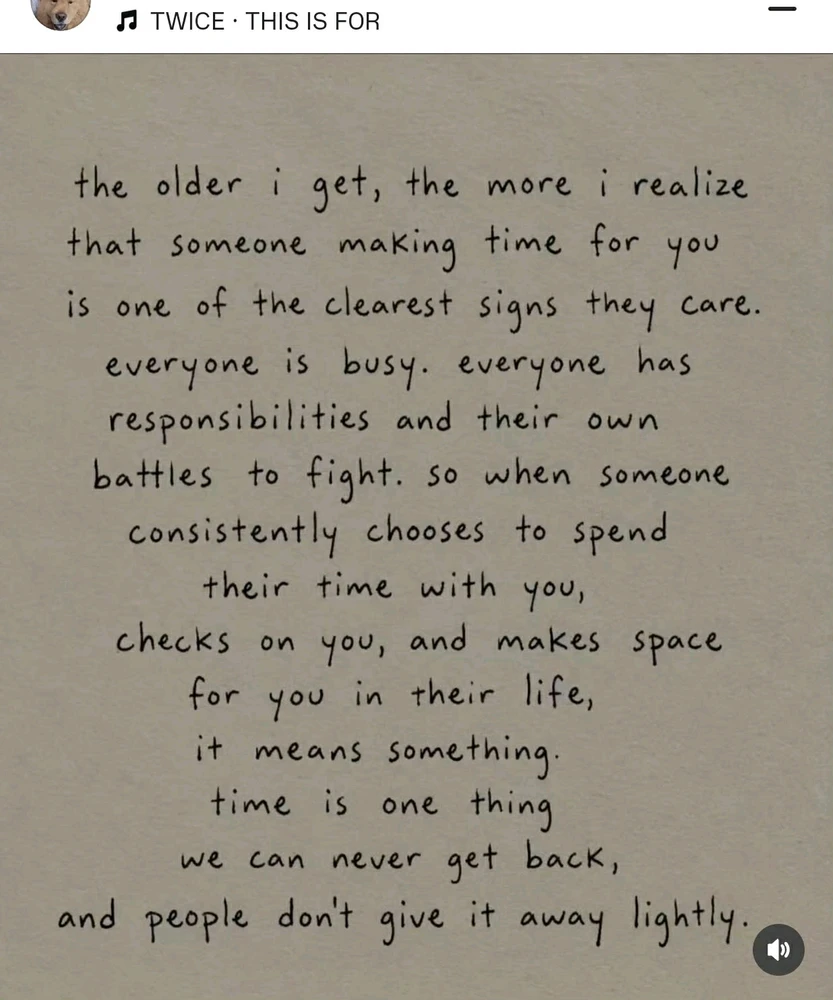 TWICE · THIS IS FOR
the older i get, the more i realize
that someone making time for you
is one of the clearest signs they care.
everyone is busy. everyone has
responsibilities and their own
battles to fight. so when someone
consistently chooses to spend
their time with you,
checks on you, and makes space
for you in their life,
it means something.
time is one thing
we can never get back,
and people don't give it away lightly.